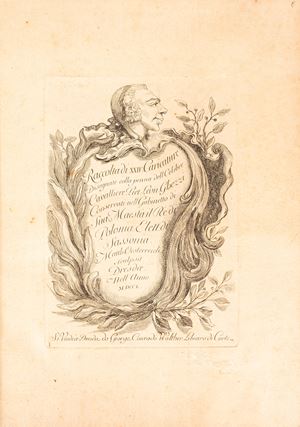 Raccolta di XXIV Caricature
Disegnate colla penna dell Celebre
Cavalliere Piet. Leon Ghezzi
Conservate nell Gabinetto di
Sua Maestà il Re di
Polonia Elett. di
Sassonia
Matth. Oesterreich
sculpsit
Dresda
Nell Anno
MDCCL
Si Vende Dresda da George Conrado Walther Libraro di Corte